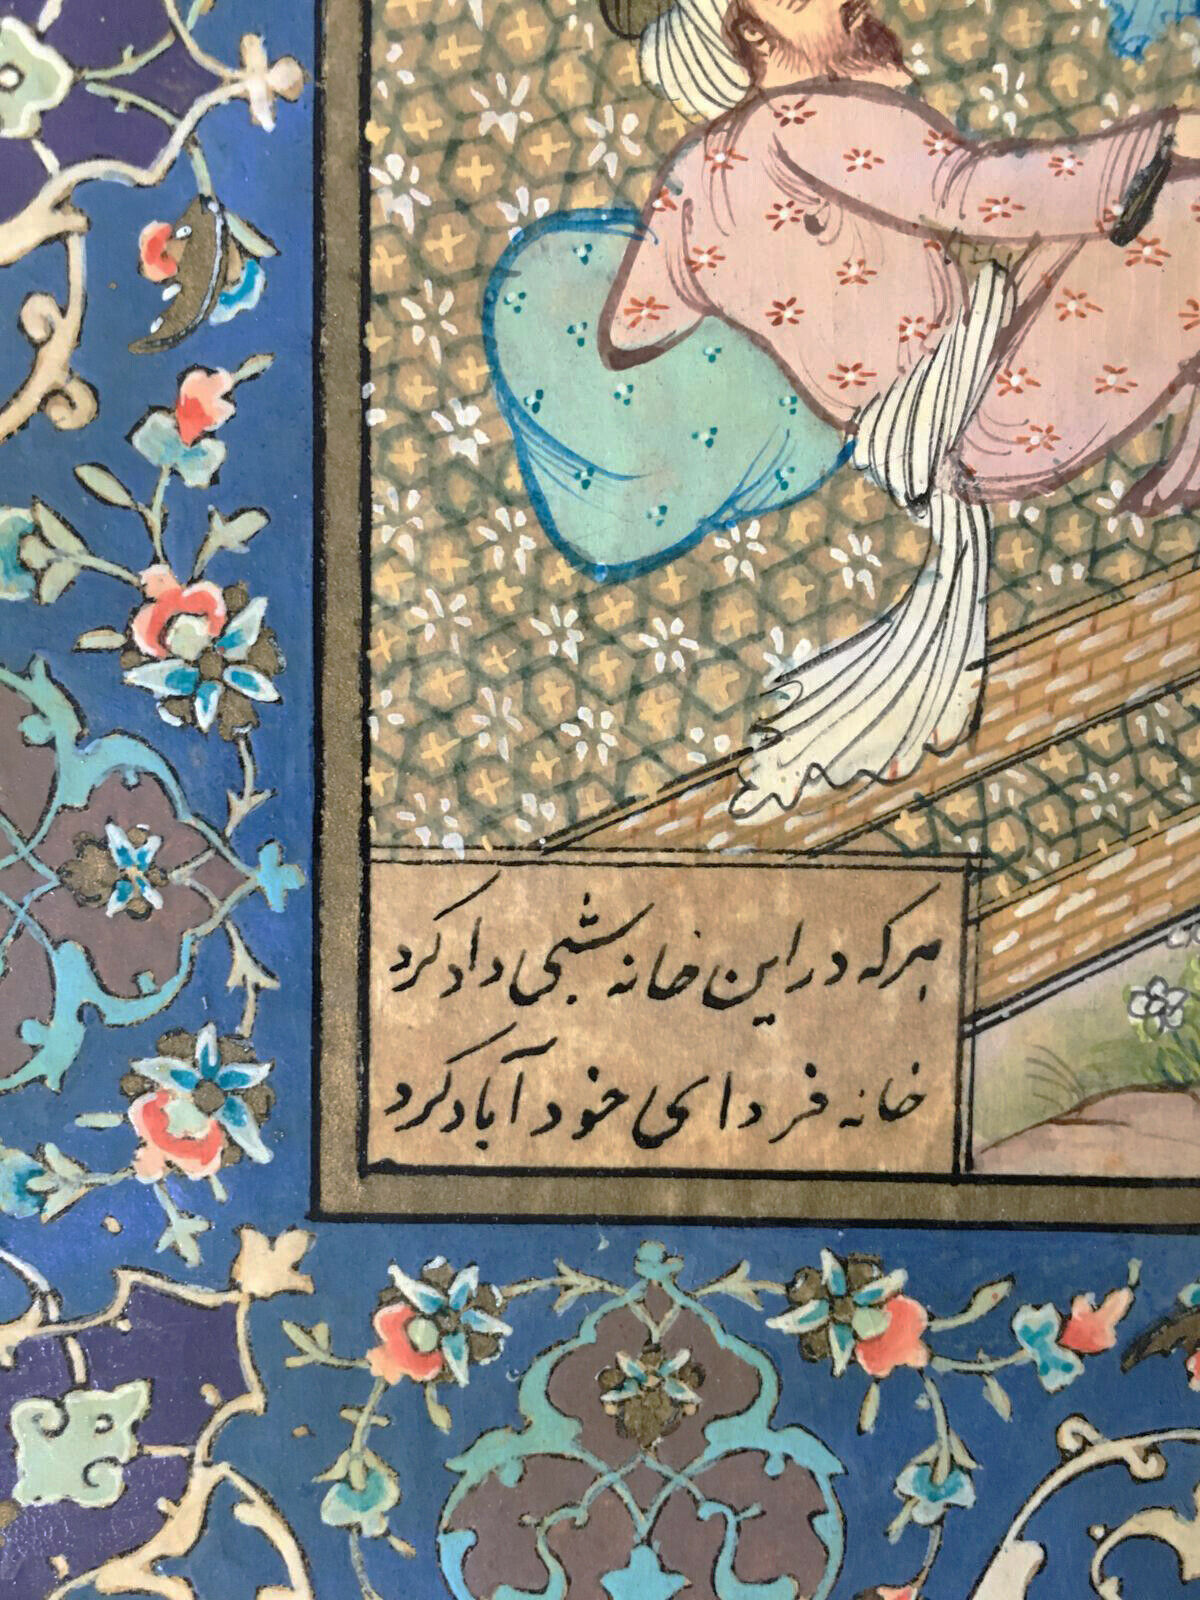 هرکه در این خانه شبی داد کرد
خانه فردای خود آباد کرد